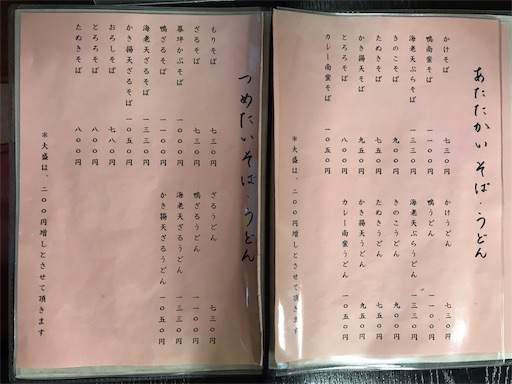 あたたかい そば・うどん
かけそば 七三〇円
鴨南蛮そば 一一〇〇円
海老天ぷらそば 一三三〇円
きのこそば 九〇〇円
たぬきそば 七五〇円
かき揚天そば 九五〇円
とろろそば 八〇〇円
カレー南蛮そば 一〇五〇円
かけうどん 七三〇円
鴨うどん 一一〇〇円
海老天ぷらうどん 一三三〇円
きのこうどん 九〇〇円
たぬきうどん 七五〇円
かき揚天うどん 九五〇円
カレー南蛮うどん 一〇五〇円
*大盛は、二〇〇円増しとさせて頂きます
つめたい そば・うどん
もりそば 七三〇円
ざるそば 七三〇円
暮坪かぶそば 一〇〇〇円
鴨ざるそば 一一〇〇円
海老天ざるそば 一三三〇円
かき揚天ざるそば 一〇五〇円
おろしそば 七八〇円
とろろそば 八〇〇円
たぬきそば 八〇〇円
ざるうどん 七三〇円
鴨ざるうどん 一一〇〇円
海老天ざるうどん 一三三〇円
かき揚天ざるうどん 一〇五〇円
*大盛は、二〇〇円増しとさせて頂きます